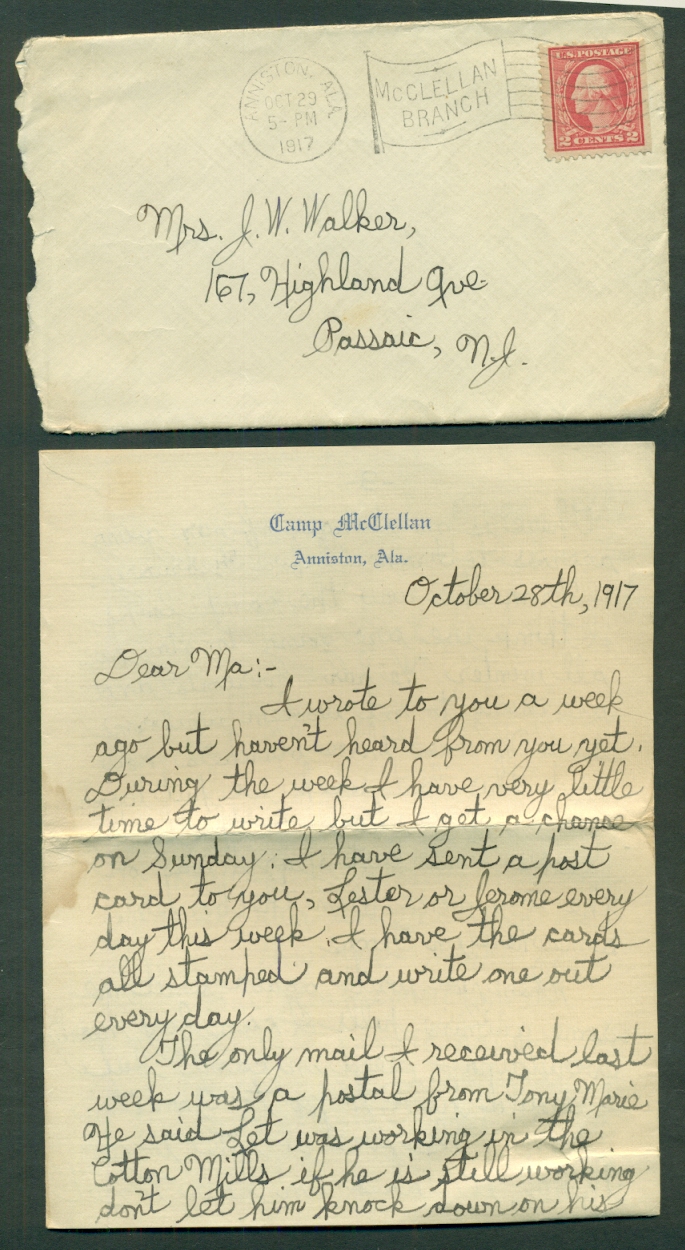 ANNISTON, ALA.
OCT 29
5- PM
1917
McCLELLAN
BRANCH
U.S. POSTAGE
2 CENTS 2
Mrs. J. W. Walker,
167, Highland Ave
Passaic, N.J.
Camp McClellan
Anniston, Ala.
October 28th, 1917
Dear Ma:-
I wrote to you a week
ago but haven't heard from you yet.
During the week I have very little
time to write but I get a chance
on Sunday. I have sent a post
card to you, Lester or Jerome every
day this week. I have the cards
all stamped and write one out
every day.
The only mail I received last
week was a postal from Tony Marie
He said Let was working in the
Cotton Mills if he is still working
don't let him knock down on his